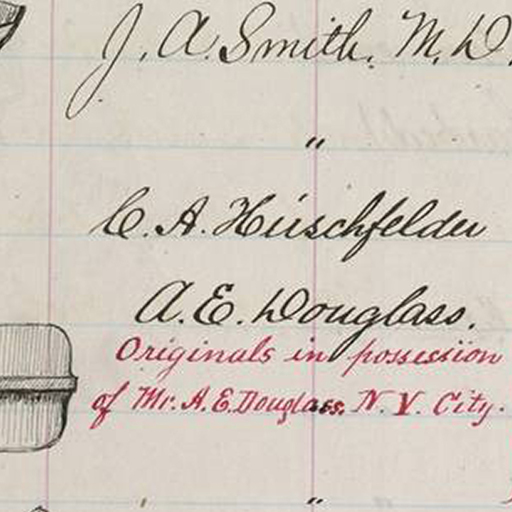 J. A. Smith, M. D.
"
C. A. Hirschfelder
A. E. Douglass.
Originals in possession
of Mr. A. E. Douglass, N. Y. City.
"